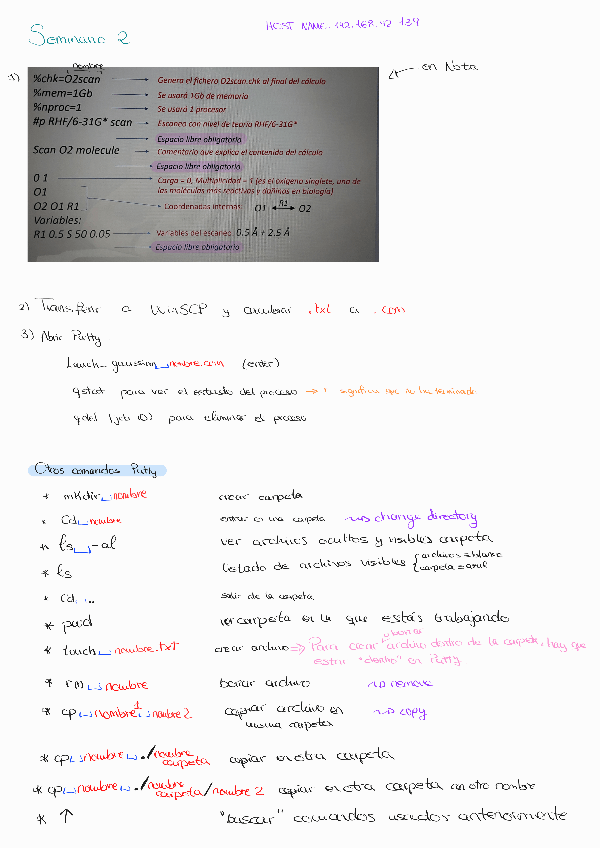 Seminario 2
HOST NAME: 192.168.42.139
1)
nombre
%chk=O2scan → Genera el fichero O2scan.chk al final del cálculo
%mem=1Gb → Se usará 1Gb de memoria
%nproc=1 → Se usará 1 procesor
#p RHF/6-31G* scan → Escaneo con nivel de teoría RHF/6-31G*
Espacio libre obligatorio
Scan O2 molecule → Comentario que explica el contenido del cálculo
Espacio libre obligatorio
0 1 → Carga = 0, Multiplicidad = 1 (es el oxígeno singlete, una de
las moléculas más reactivas y dañinas en biología)
O1
O2 O1 R1 → Coordenadas internas O1 ↔ O2
R1
Variables:
R1 0.5 S 50 0.05 → Variables del escaneo 0.5 Å ÷ 2.5 Å
Espacio libre obligatorio
← en Nota
2) Transferir a WinSCP y cambiar .txt a .com
3) Abrir Putty
gaussian nombre.com (enter)
qstat para ver el estado del proceso → significa que no ha terminado
qdel (job ID) para eliminar el proceso
Otros comandos Putty
* mkdir nombre crear carpeta
* cd nombre entrar en una carpeta → change directory
* ls -al ver archivos ocultos y visibles carpeta
* ls listado de archivos visibles { archivos = blanco
carpeta = azul
* cd .. salir de la carpeta
* pwd ver carpeta en la que estás trabajando
* touch nombre.txt crear archivo ⇒ Para crear archivo dentro de la carpeta, hay que
estar "dentro" en Putty
* rm nombre borrar archivo → remove
* cp nombre1 nombre2 copiar archivo en → copy
misma carpeta
* cp nombre ./nombre copiar en otra carpeta
carpeta
* cp nombre ./nombre /nombre 2 copiar en otra carpeta con otro nombre
carpeta
* ↑ "buscar" comandos usados anteriormente